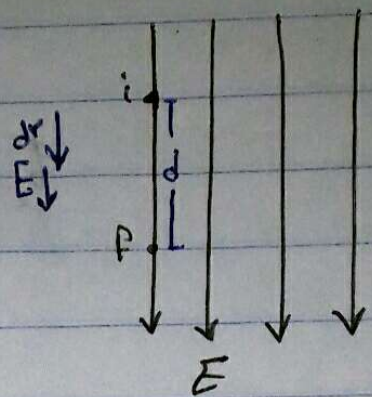 i
dr
E
d
P
E